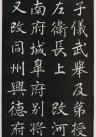 子儀武舉及第
左衛長上改河
南府城皋府別將
又改同州興德府